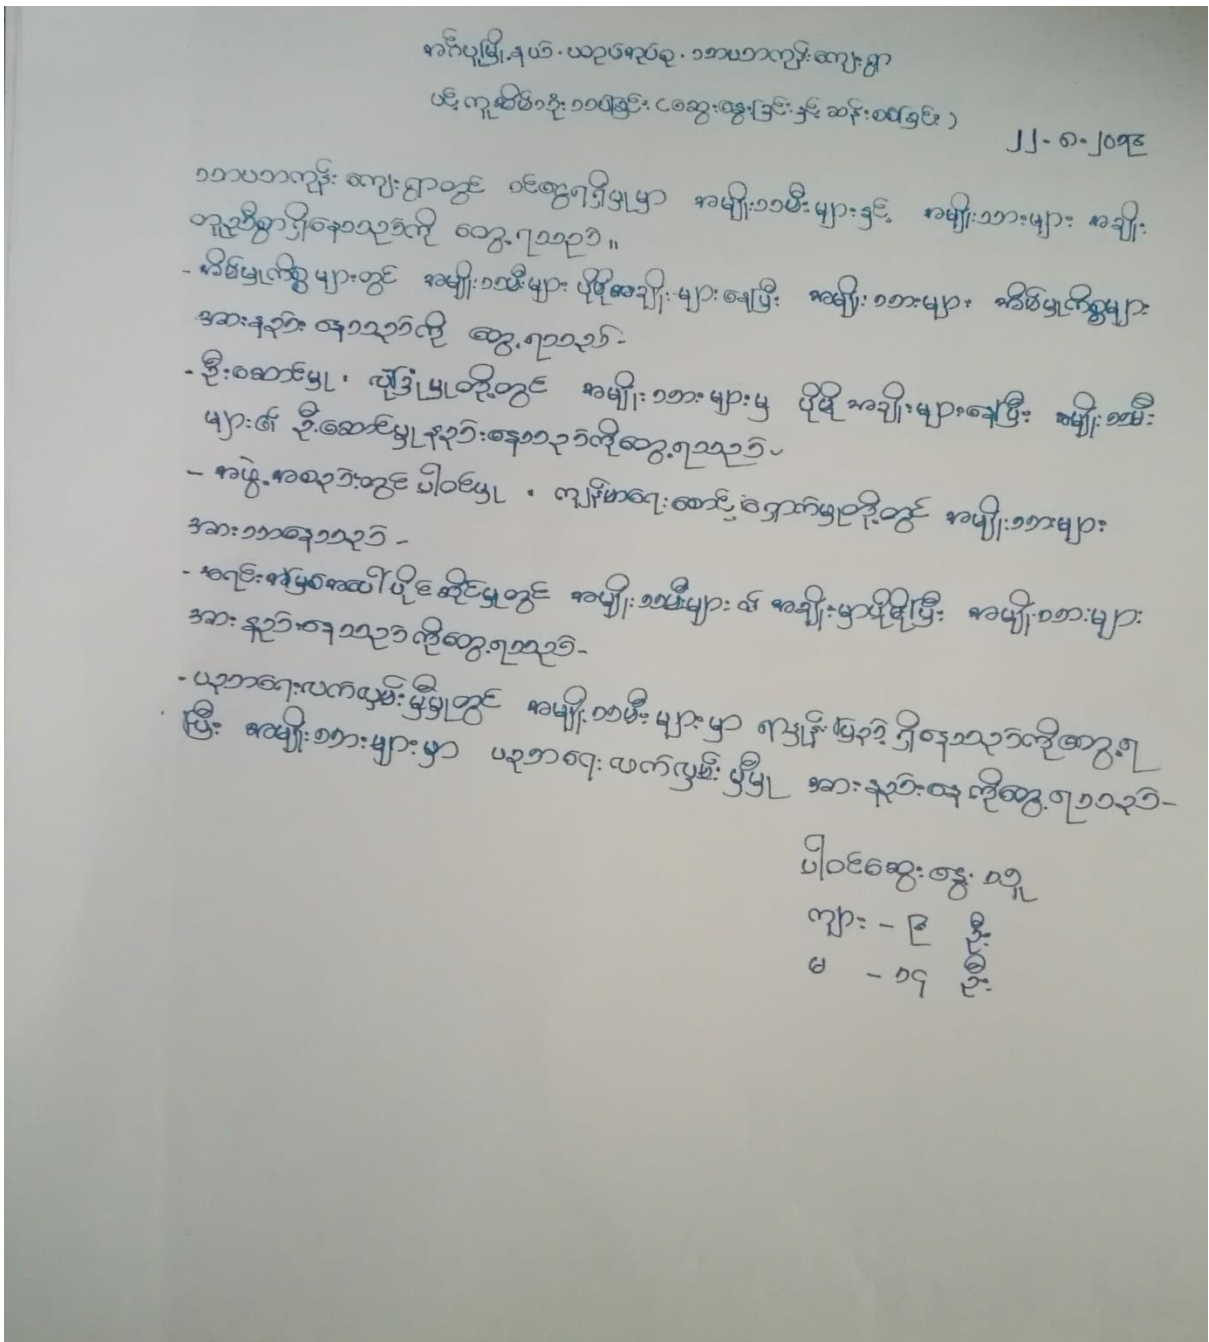 အင်္ဂပူမြို့နယ်၊ ယဉ်ပင်အုပ်စု၊ သာယာကုန်းကျေးရွာ
ပင့်ကူအိမ်သုံးသပ်ခြင်း (ဆွေးနွေးခြင်းနှင့် ဆန်းစစ်ခြင်း)
၂၂-၈-၂၀၁၄
သာယာကုန်း ကျေးရွာတွင် ဝင်ငွေရရှိမှုမှာ အမျိုးသမီးများနှင့် အမျိုးသားများ အချိုး
တူညီစွာရှိနေသည်ကို တွေ့ရသည်။
- အိမ်မှုကိစ္စများတွင် အမျိုးသမီးများ ပိုမိုအချိုးများနေပြီး အမျိုးသားများ အိမ်မှုကိစ္စများ
အားနည်းနေသည်ကို တွေ့ရသည်-
- ဦးဆောင်မှု၊ လုံခြုံမှုတို့တွင် အမျိုးသားများမှ ပိုမိုအချိုးများနေပြီး အမျိုးသမီး
များ၏ ဦးဆောင်မှုနည်းနေသည်ကိုတွေ့ရသည်-
- အဖွဲ့အစည်းတွင် ပါဝင်မှု၊ ကျန်းမာရေးစောင့်ရှောက်မှုတို့တွင် အမျိုးသားများ
အားသာနေသည်-
- အရင်းအမြစ်အပေါ်ပိုင်ဆိုင်မှုတွင် အမျိုးသမီးများ၏ အချိုးမှာပိုမိုပြီး အမျိုးသားများ
အားနည်းနေသည်ကိုတွေ့ရသည်-
- ပညာရေးလက်လှမ်းမှီမှုတွင် အမျိုးသမီးများမှာ ရာနှုန်းပြည့်ရှိနေသည်ကိုတွေ့ရ
ပြီး အမျိုးသားများမှာ ပညာရေးလက်လှမ်းမှီမှု အားနည်းနေကိုတွေ့ရသည်-
ပါဝင်ဆွေးနွေးသူ
ကျား - ၉ ဦး
မ - ၁၄ ဦး